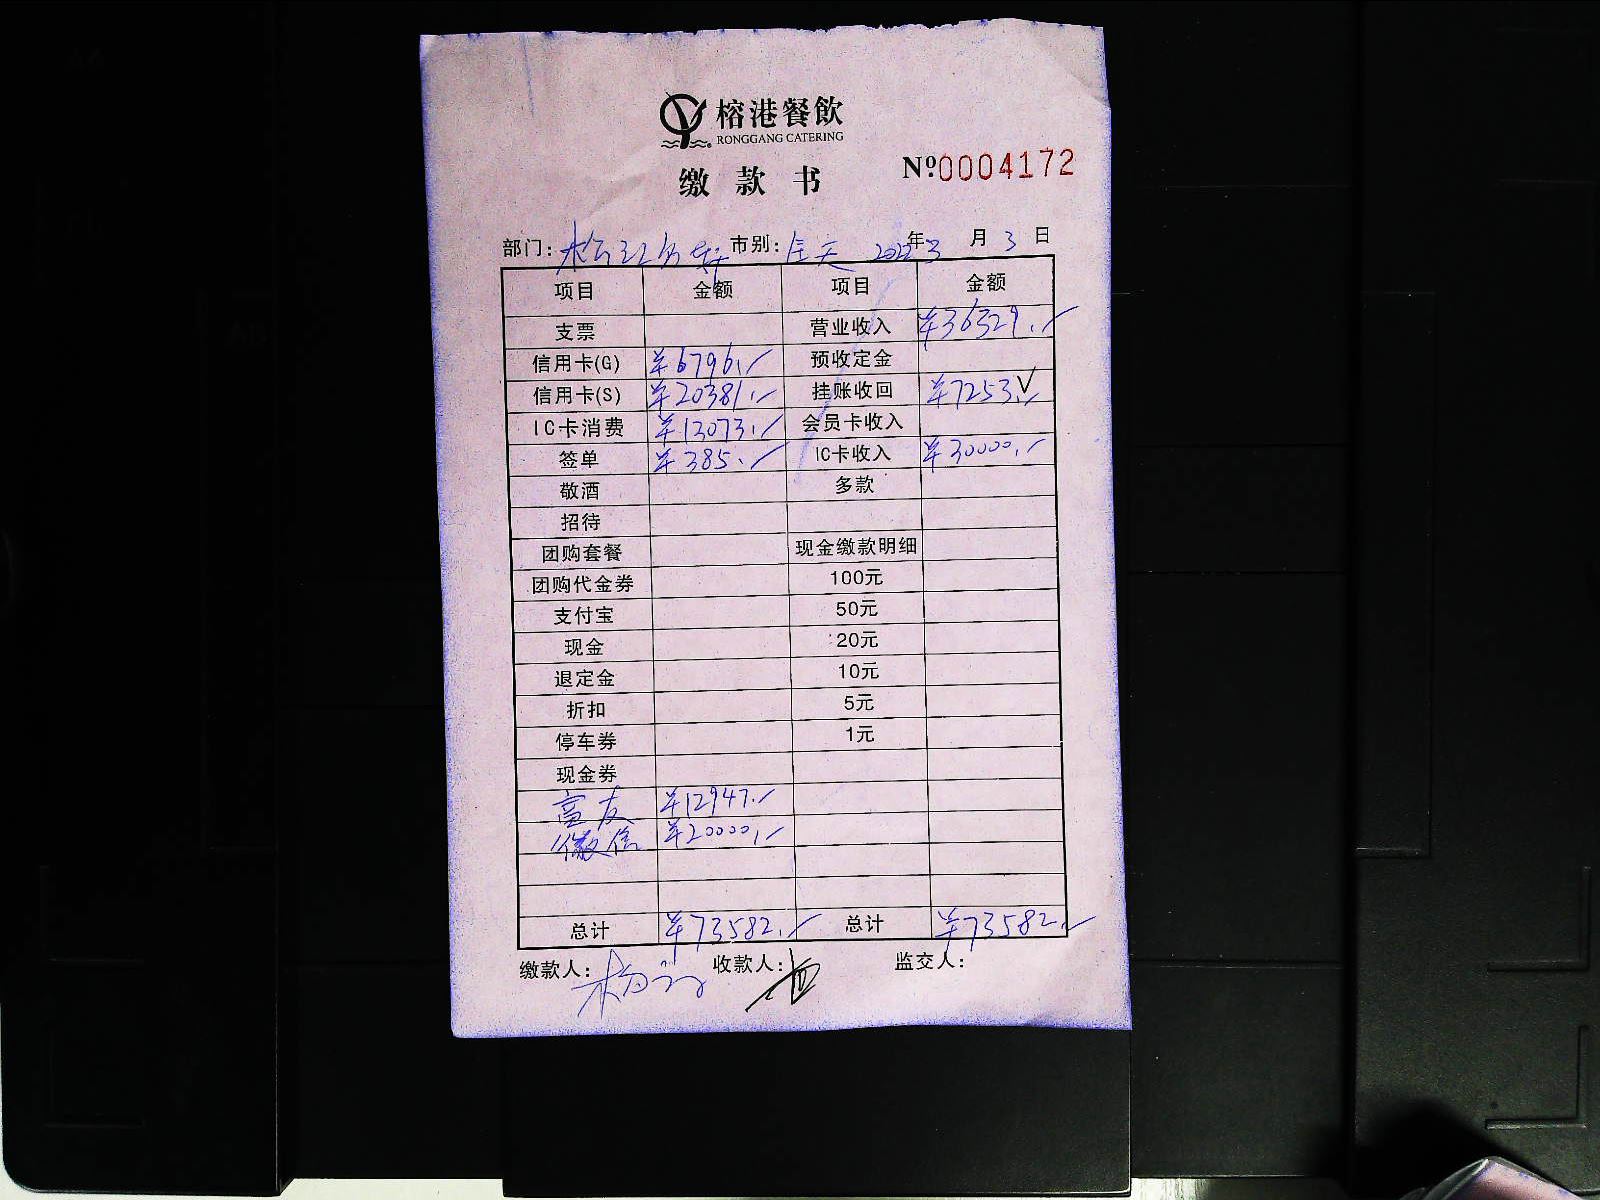 榕港餐飲
RONGGANG CATERING
缴款书
Nº0004172
部门: 市别:全天 2022年3月3日
项目 金额 项目 金额
支票 营业收入 ¥36329.-
信用卡(G) ¥6796.- 预收定金
信用卡(S) ¥20381.- 挂账收回 ¥7253.- √
IC卡消费 ¥13073.- 会员卡收入
签单 ¥385.- IC卡收入 ¥30000.-
敬酒 多款
招待
团购套餐 现金缴款明细
团购代金券 100元
支付宝 50元
现金 20元
退定金 10元
折扣 5元
停车券 1元
现金券
富友 ¥12947.-
微信 ¥20000.-
总计 ¥73582.- 总计 ¥73582.-
缴款人: 收款人: 监交人: